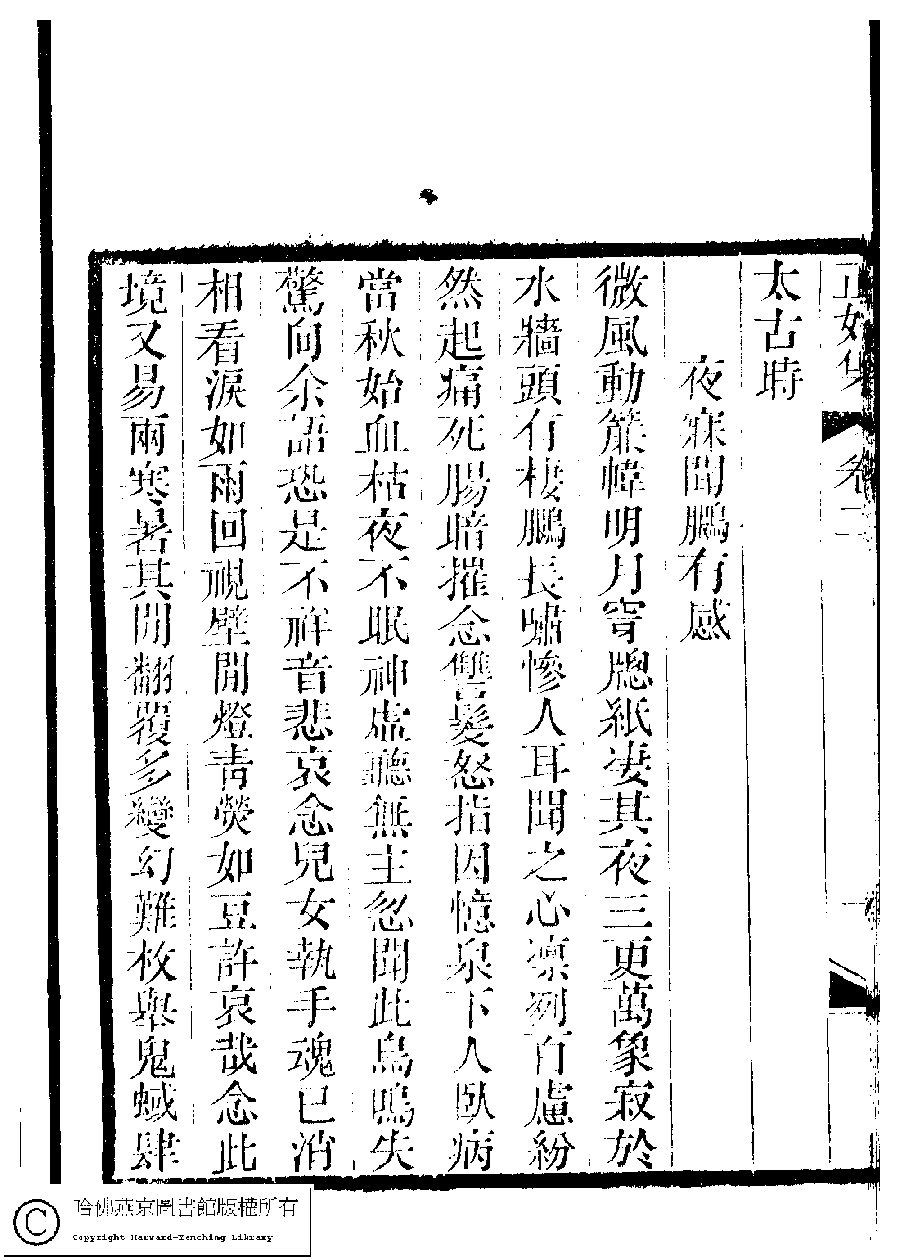 正始集 卷二
太古時
夜寐聞鵬有感
微風動簾幃明月穿牕紙凄其夜三更萬象寂於
水牆頭有棲鵬長嘯慘人耳聞之心凛冽百慮紛
然起痛死腸暗摧念讐髮怒指因憶泉下人臥病
當秋始血枯夜不眠神虛聽無主忽聞此鳥鳴失
驚向余語恐是不祥音悲哀念兒女執手魂已消
相看淚如雨回視壁閒燈青熒如豆許哀哉念此
境又易兩寒暑其閒翻覆多變幻難枚舉鬼蜮肆
哈佛燕京圖書館版權所有
Copyright Harvard-Yenching Library